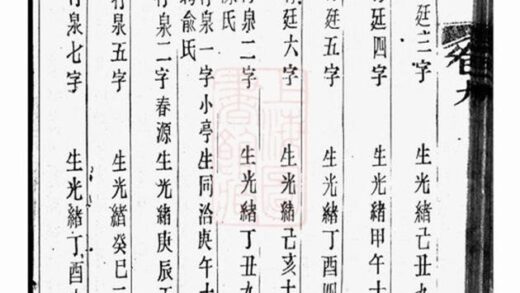 卷九
廷三字 生光緒己丑九
廷四字 生光緒甲午十
廷五字 生光緒丁酉四
廷六字 生光緒己亥十
泉二字 生光緒丁丑九
氏
泉一字小亭生同治庚午十
俞氏
行泉二字春源生光緒庚辰
行泉五字 生光緒癸巳二
行泉七字 生光緒丁酉
上海圖書館藏